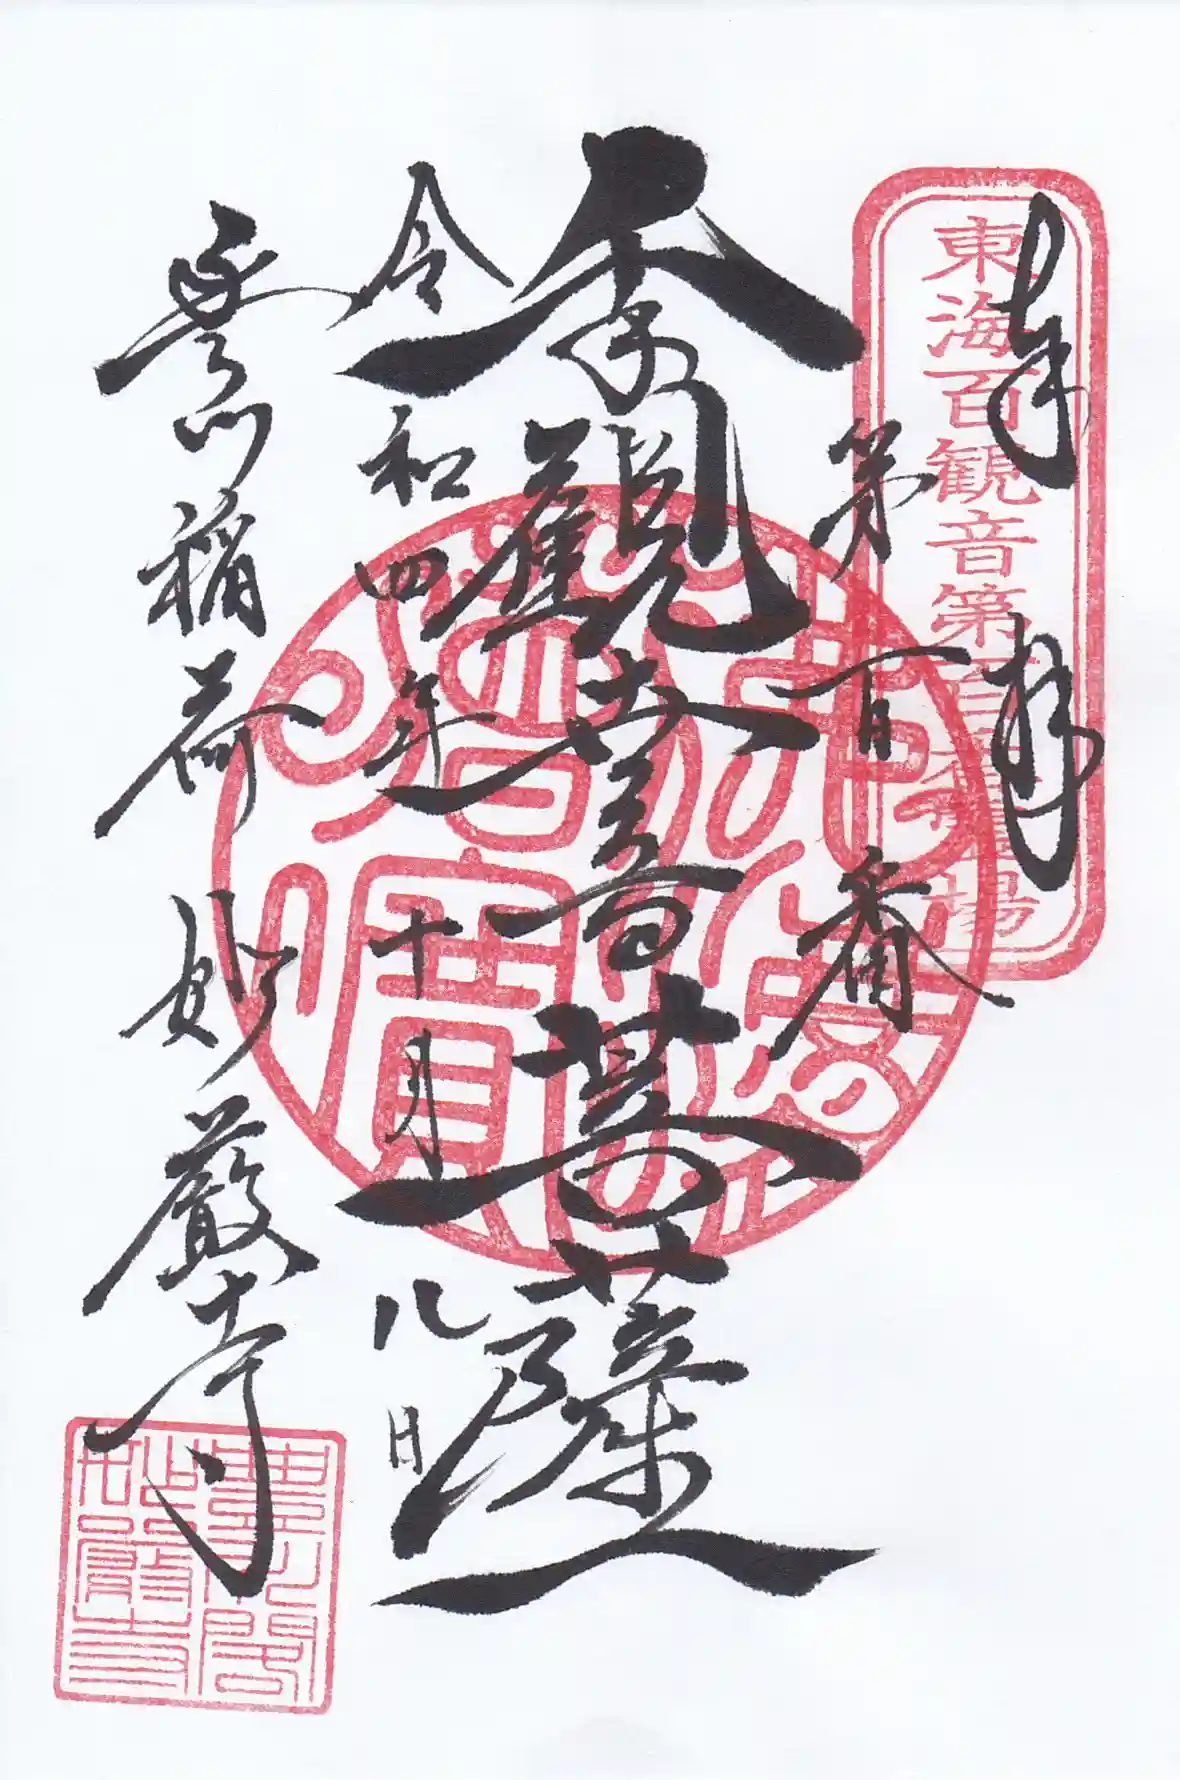 奉拝
東海百観音第百番霊場
第百番
觀世音菩薩
令和四年十月八日
豊川稲荷 妙厳寺